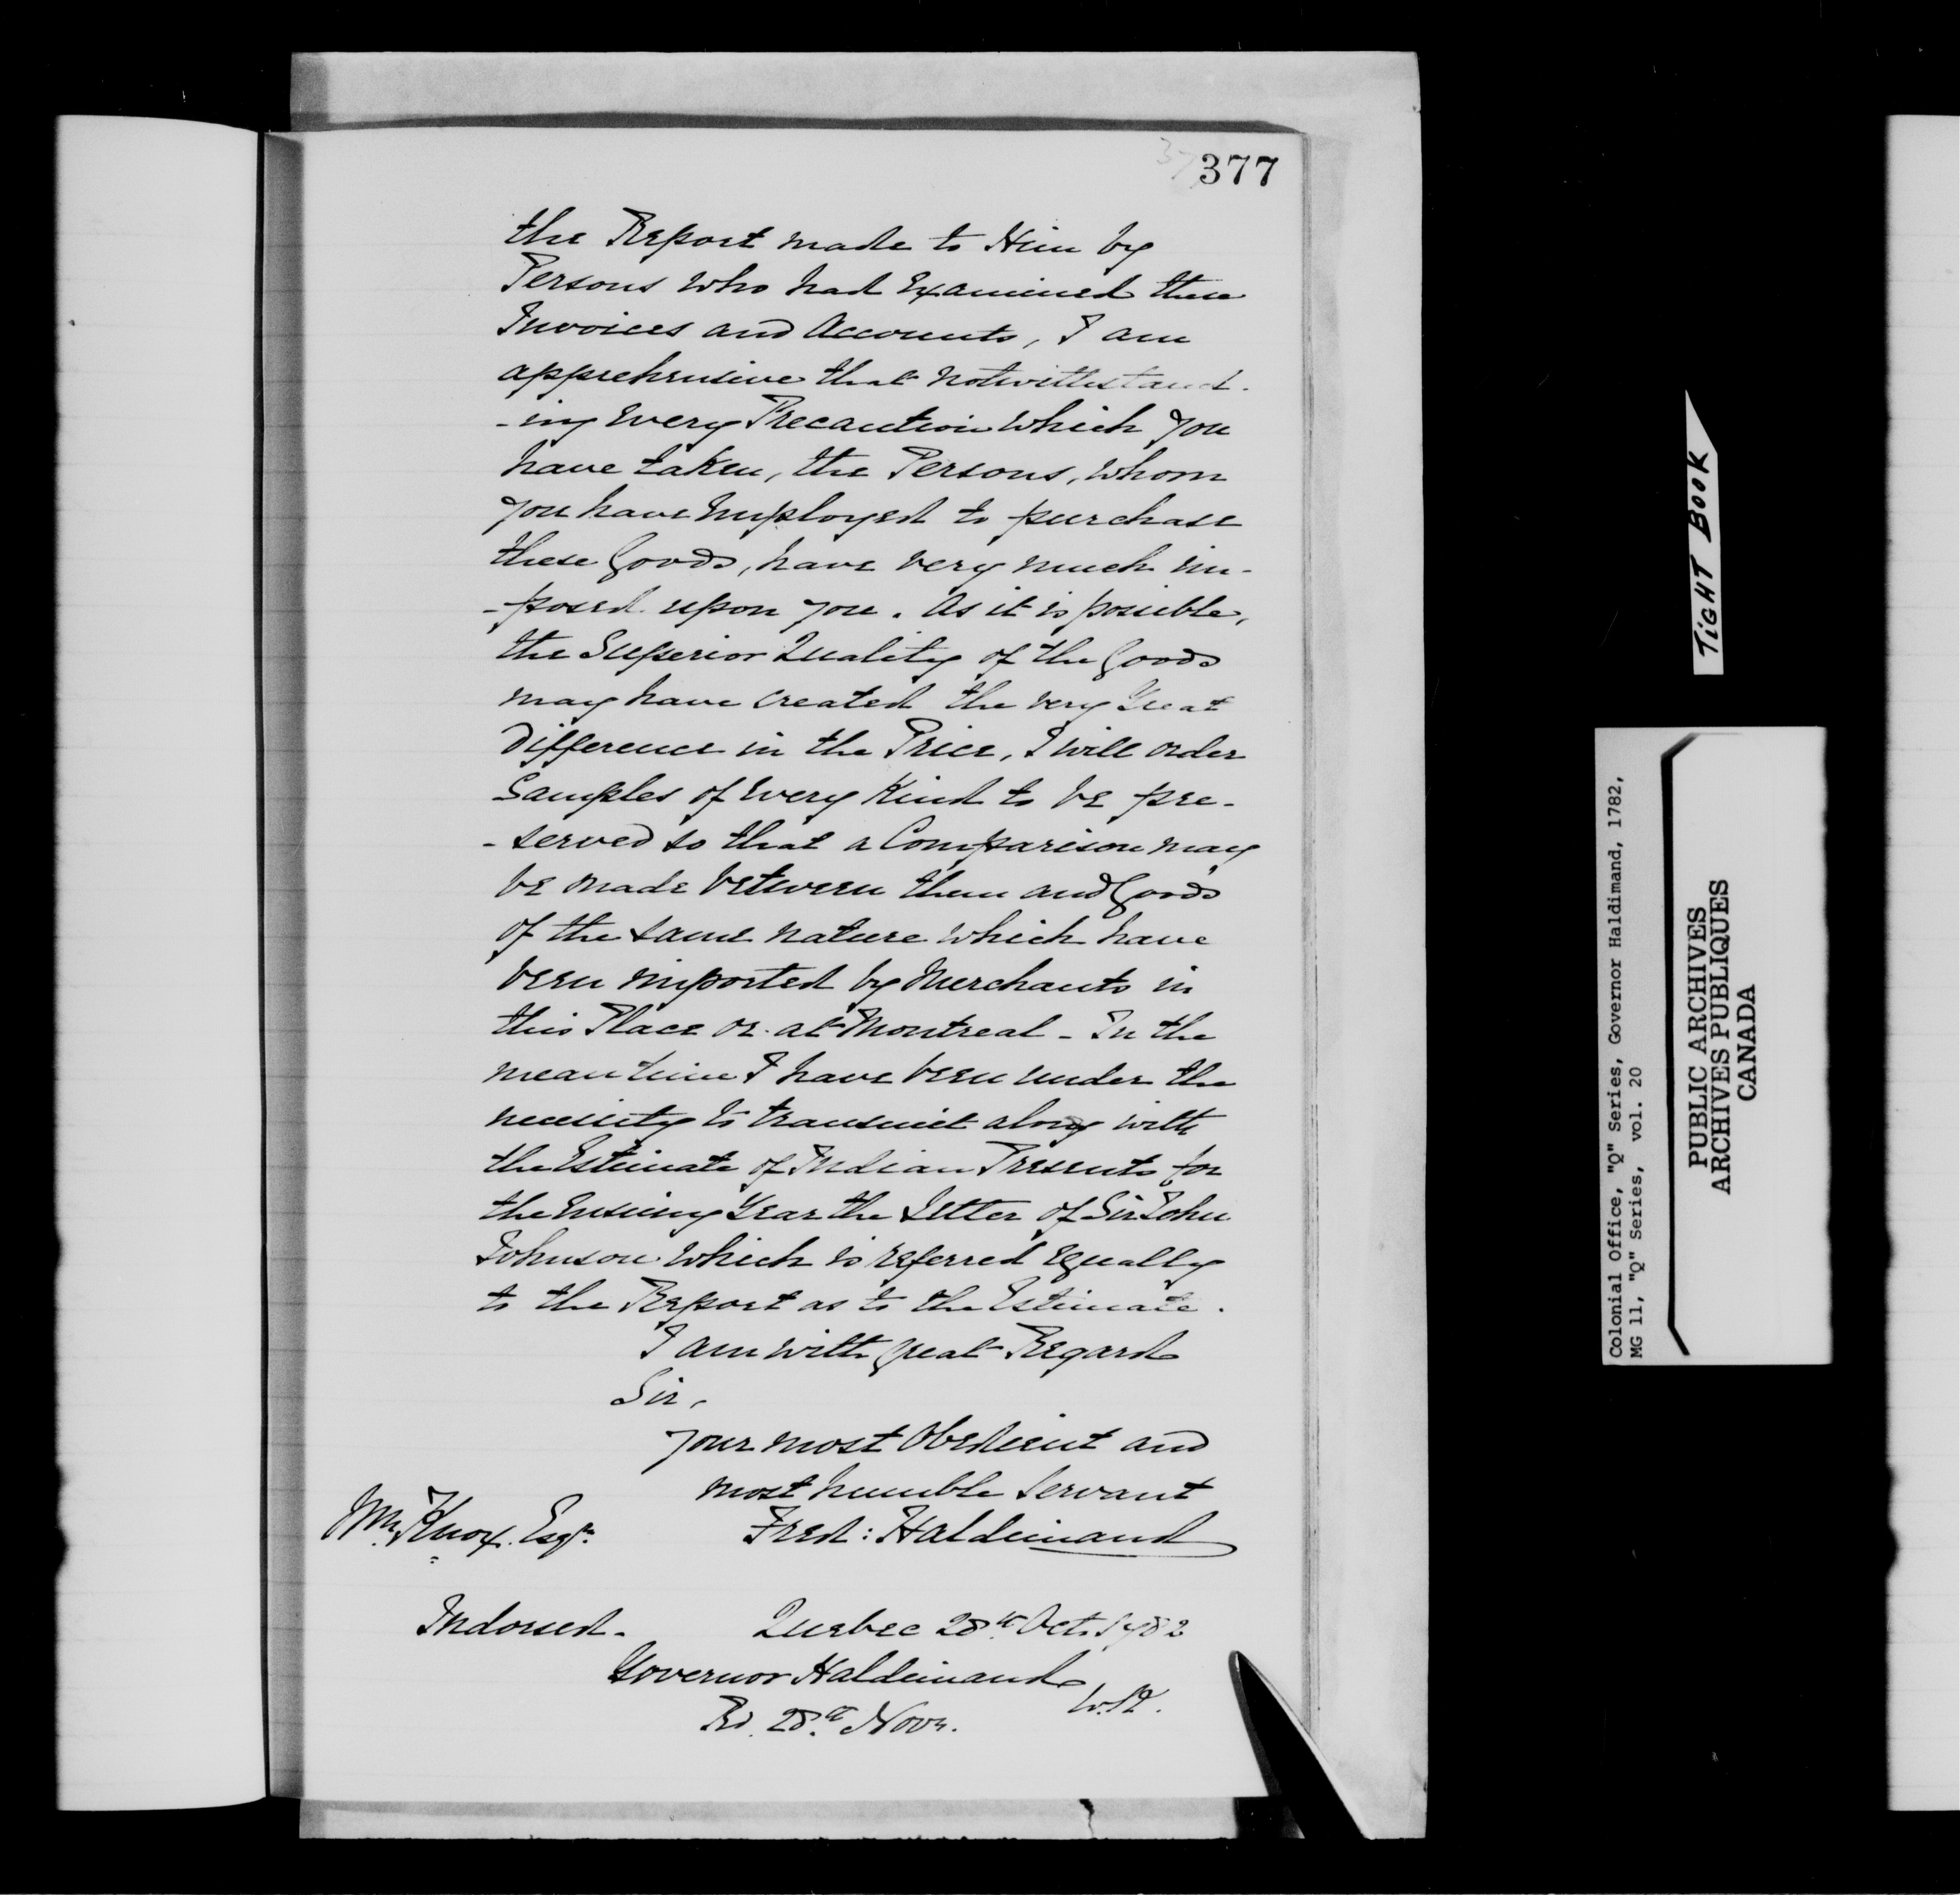 377
the Report made to Him by
Persons who had Examined these
Invoices and Accounts, I am
apprehensive that notwithstand-
-ing Every Precaution which you
have taken, the Persons, whom
you have Employed to purchase
these Goods, have very much im-
-posed upon you. As it is possible,
the Superior Quality of the Goods
may have created the very Great
Difference in the Price, I will order
Samples of Every Kind to be pre-
-served so that a Comparison may
be made between them and Goods
of the same nature which have
been imported by Merchants in
this Place or at Montreal - In the
mean time I have been under the
necessity to transmit along with
the Estimate of Indian Presents for
the Ensuing Year the Letter of Sir John
Johnson which is referred Equally
to the Report as to the Estimate.
I am with great Regard
Sir,
your most Obedient and
most humble Servant
Wm. Knox. Esqr. Fred: Haldimand
Indorsed. Quebec 28th Oct. 1782
Governor Haldimand
Rd. 28th Novr.
TIGHT BOOK
Colonial Office, "Q" Series, Governor Haldimand, 1782,
MG 11, "Q" Series, vol. 20
PUBLIC ARCHIVES
ARCHIVES PUBLIQUES
CANADA